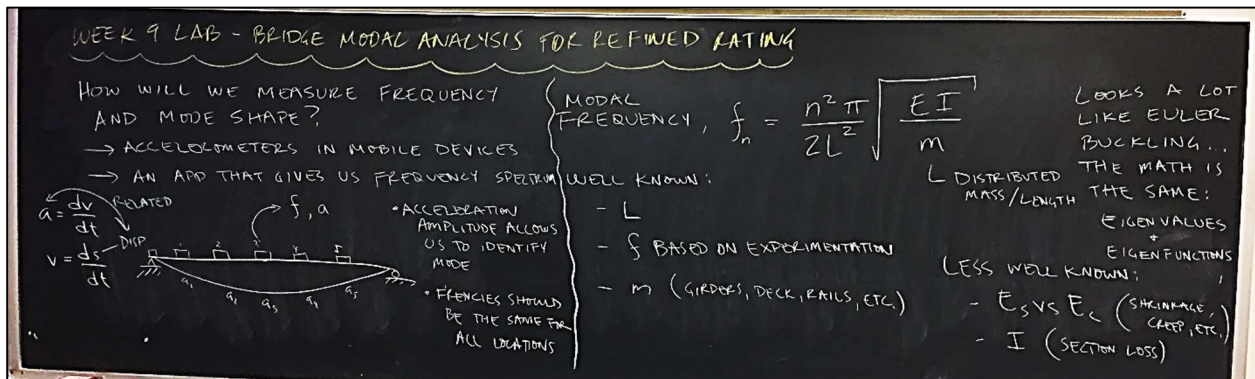 WEEK 9 LAB - BRIDGE MODAL ANALYSIS FOR REFINED RATING
HOW WILL WE MEASURE FREQUENCY
AND MODE SHAPE?
→ ACCELEROMETERS IN MOBILE DEVICES
→ AN APP THAT GIVES US FREQUENCY SPECTRUM
a = dv/dt
RELATED
v = ds/dt
DISP
f, a
1 2 3 4 5
a₁ a₂ a₃ a₄ a₅
• ACCELERATION
AMPLITUDE ALLOWS
US TO IDENTIFY
MODE
• FRENCIES SHOULD
BE THE SAME FOR
ALL LOCATIONS
MODAL
FREQUENCY, fₙ = n²π/2L² √EI/m
DISTRIBUTED
MASS/LENGTH
WELL KNOWN:
- L
- f BASED ON EXPERIMENTATION
- m (GIRDERS, DECK, RAILS, ETC.)
LOOKS A LOT
LIKE EULER
BUCKLING...
THE MATH IS
THE SAME:
EIGENVALUES
+
EIGENFUNCTIONS
LESS WELL KNOWN:
- Es VS Ec (SHRINKAGE,
CREEP, ETC.)
- I (SECTION LOSS)